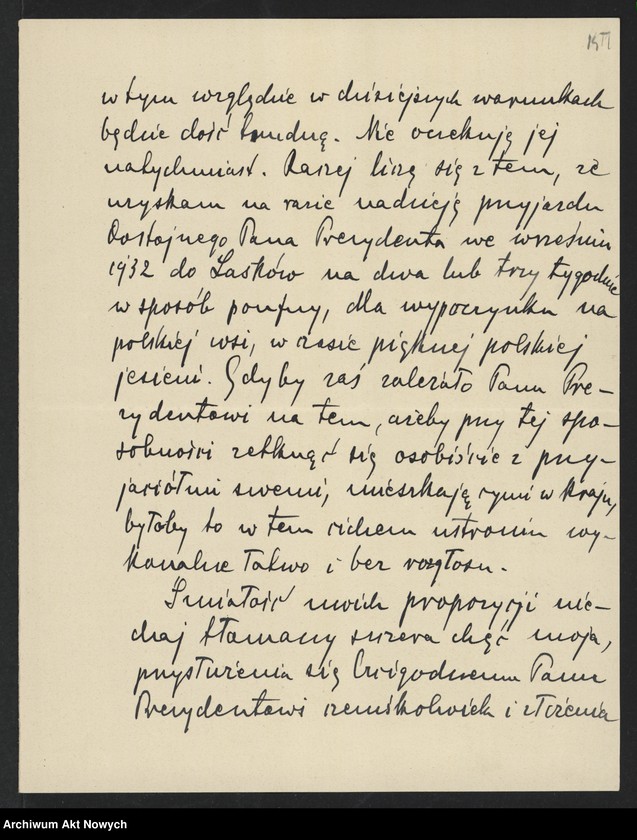 157
w tym względzie w dzisiejszych warunkach
będzie dość trudną. Nie oczekuję jej
natychmiast. Raczej liczę się z tem, że
uzyskam na razie nadzieję przyjazdu
Dostojnego Pana Prezydenta we wrześniu
1932 do Lasków na dwa lub trzy tygodnie
w sposób poufny, dla wypoczynku na
polskiej wsi, w czasie pięknej polskiej
jesieni. Gdyby zaś zależało Panu Pre-
zydentowi na tem, ażeby przy tej spo-
sobności zetknąć się osobiście z przy-
jaciółmi swemi, mieszkającymi w kraju,
byłoby to w tem cichem ustroniu wy-
konalne łatwo i bez rozgłosu.
Śmiałość moich propozycji nie-
chaj tłomaczy szczera chęć moja,
przysłużenia się Czcigodnemu Panu
Prezydentowi czemśkolwiek i złożenia
Archiwum Akt Nowych